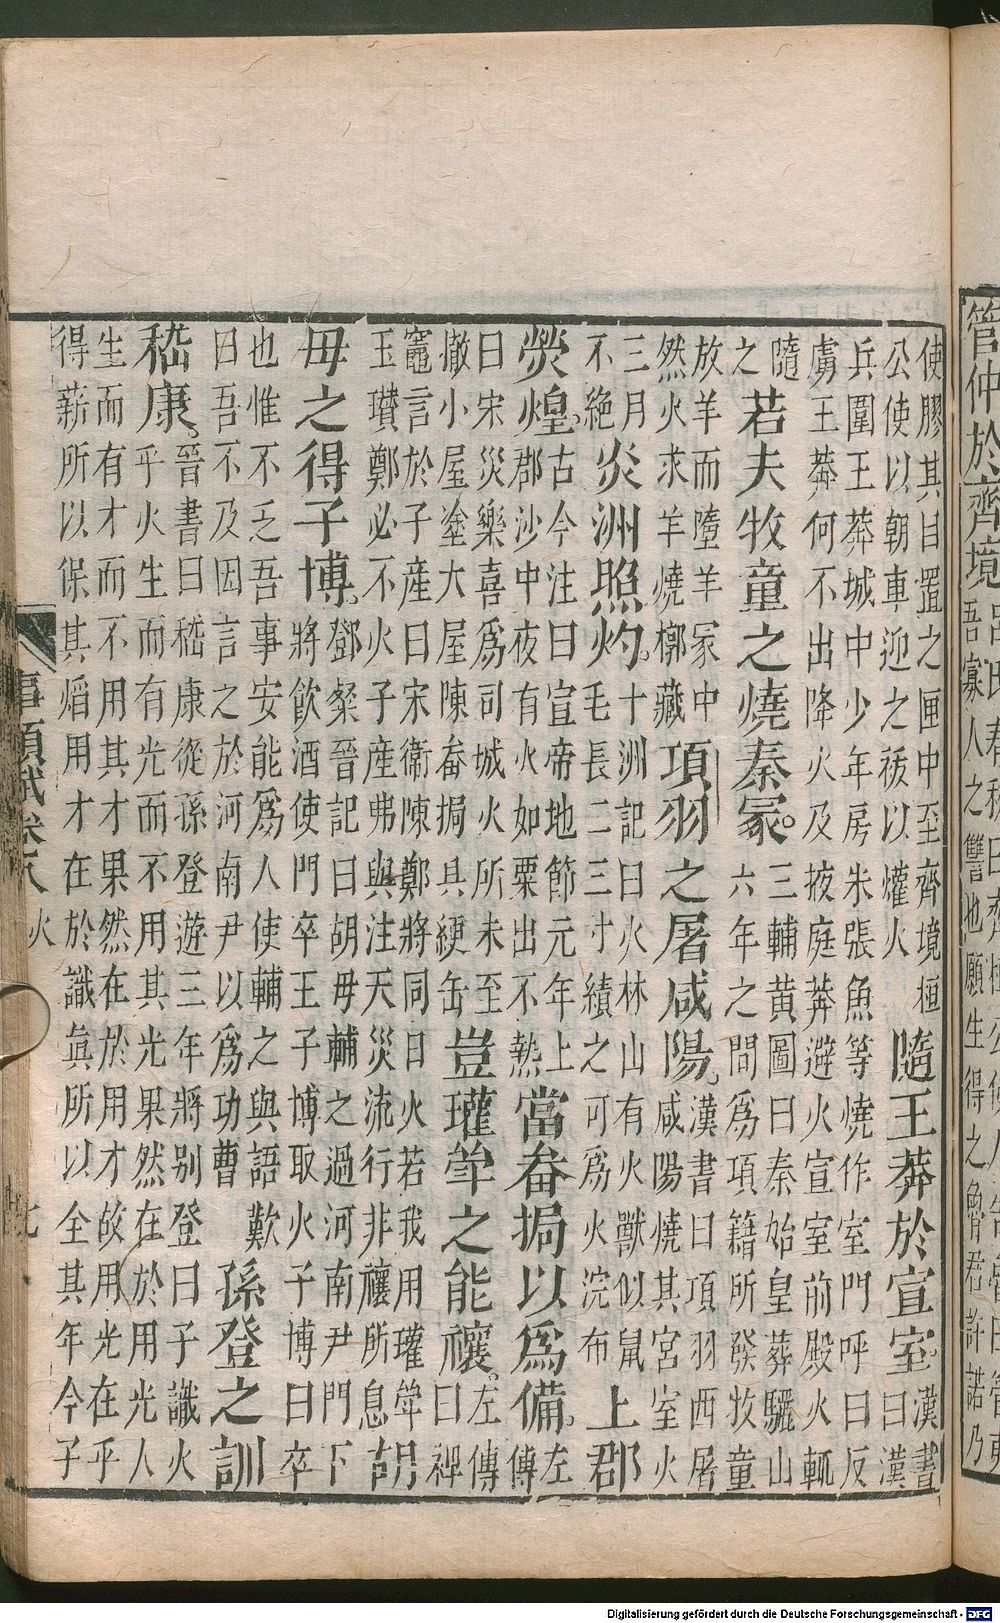 管仲於齊境
吾寡人之讐也願生得之魯君許諾乃
使膠其目置之匣中至齊境桓
公使以朝車迎之祓以爟火
隨王莽於宣室
漢書
曰漢
兵圍王莽城中少年房朱張魚等燒作室門呼曰反
虜王莽何不出降火及掖庭莽避火宣室前殿火輒
隨
之
若夫牧童之燒秦冢
三輔黃圖曰秦始皇葬驪山
六年之間爲項籍所發牧童
放羊而墮羊冢中
然火求羊燒槨藏
項羽之屠咸陽
漢書曰項羽西屠
咸陽燒其宮室火
三月
不絶
炎洲照灼
十洲記曰火林山有火獸似鼠
毛長二三寸績之可爲火浣布
上郡
熒煌
古今注曰宣帝地節元年上
郡沙中夜有火如粟出不熱
當畚挶以爲備
左
傳
曰宋災樂喜爲司城火所未至
撤小屋塗大屋陳畚挶具綆缶
豈瓘斝之能禳
左傳
曰裨
竈言於子產曰宋衞陳鄭將同日火若我用瓘斝
玉瓚鄭必不火子產弗與注天災流行非禳所息
胡
毋之得子博
鄧粲晉記曰胡毋輔之過河南尹門下
將飲酒使門卒王子博取火子博曰卒
也惟不乏吾事安能爲人使輔之與語歎
曰吾不及因言之於河南尹以爲功曹
孫登之訓
嵇康
晉書曰嵇康從孫登遊三年將別登曰子識火
乎火生而有光而不用其光果然在於用光人
生而有才而不用其才果然在於用才故用光在乎
得薪所以保其熖用才在於識眞所以全其年今子
事類賦卷八
火
七
Digitalisierung gefördert durch die Deutsche Forschungsgemeinschaft - DFG